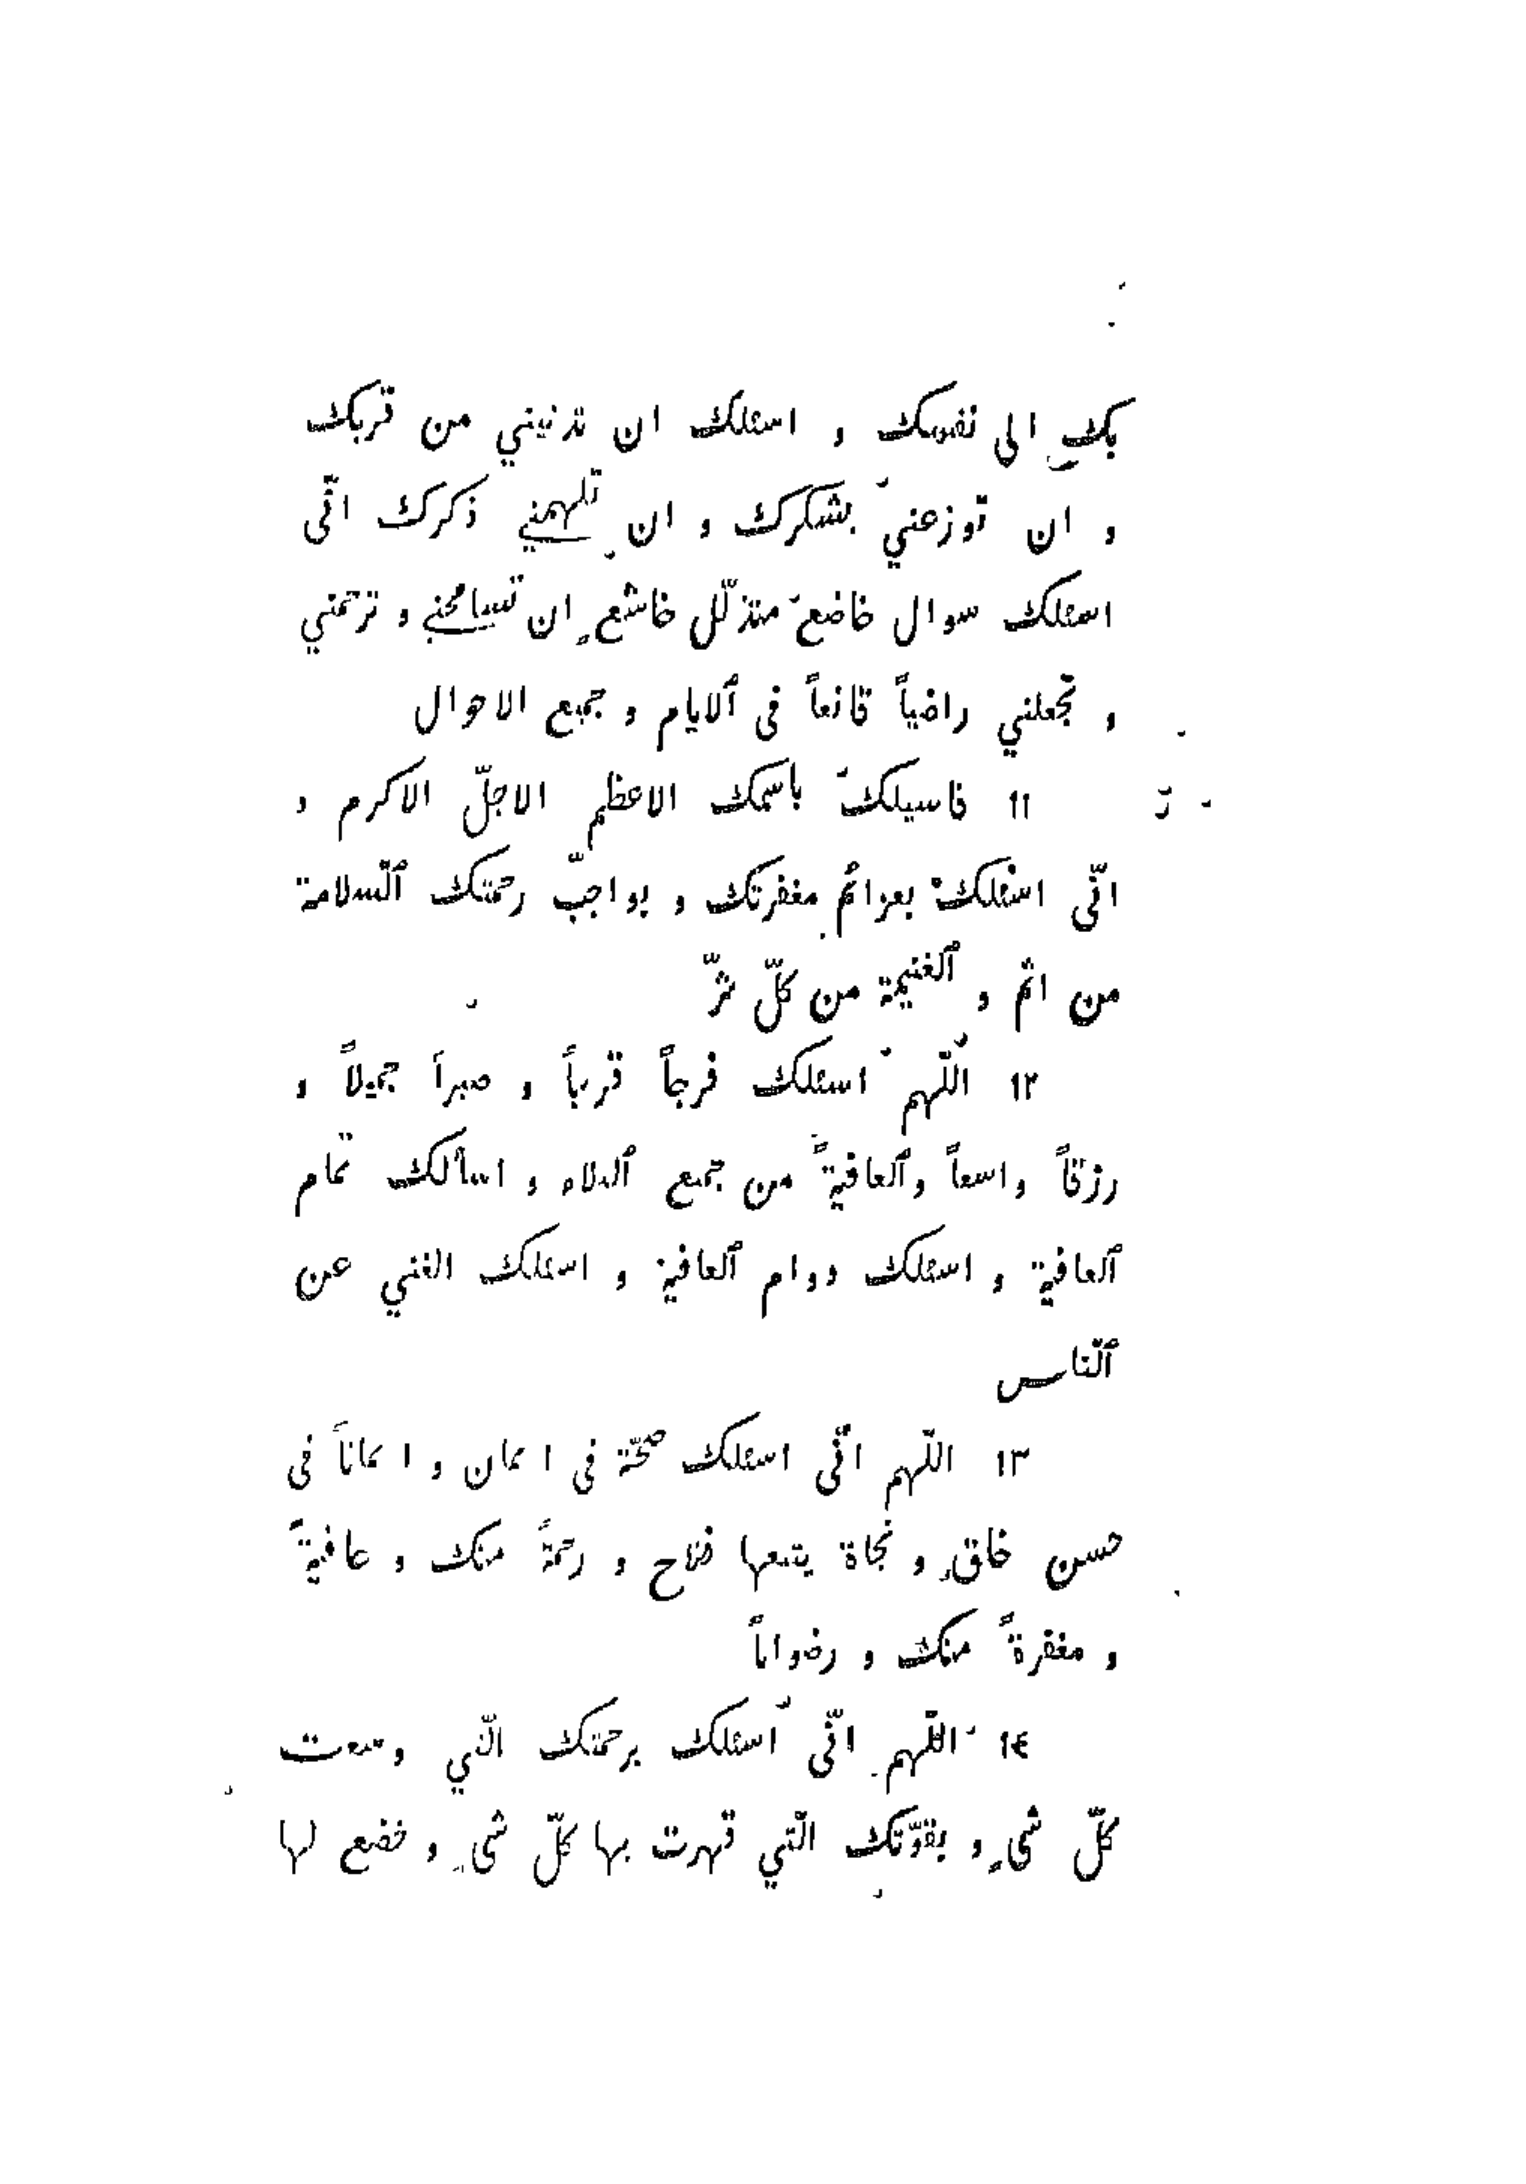 بك الى نفسك و اسئلك ان تدنيني من قربك
و ان توزعني بشكرك و ان تلهمني ذكرك انّى
اسئلك سوال خاضع متذلّل خاشع ان تسامحني و ترحمني
و تجعلني راضياً قانعاً فى ٱلايام و جميع الاحوال
١١ فاسيلك باسمك الاعظم الاجلّ الاكرم و
انّى اسئلك بعزائم مغفرتك و بواجبّ رحمتك ٱلسلامة
من اثم و ٱلغنيمة من كلّ شرّ
١٢ اللّهم اسئلك فرجاً قرباً و صبراً جميلاً و
رزقاً واسعاً وٱلعافيةً من جميع ٱلبلاء و اسألك تمام
ٱلعافية و اسئلك دوام ٱلعافية و اسئلك الغني عن
ٱلنّاس
١٣ اللّهم انّى اسئلك صحّة فى ايمان و ايماناً فى
حسن خلقٍ و نجاة يتبعها فلاح و رحمةً منك و عافيةً
و مغفرةً منك و رضواناً
١٤ اللّهم انّى اسئلك برحمتك الّتي وسعت
كلّ شىٍ و بقوّتك الّتي قهرت بها كلّ شىٍ و خضع لها